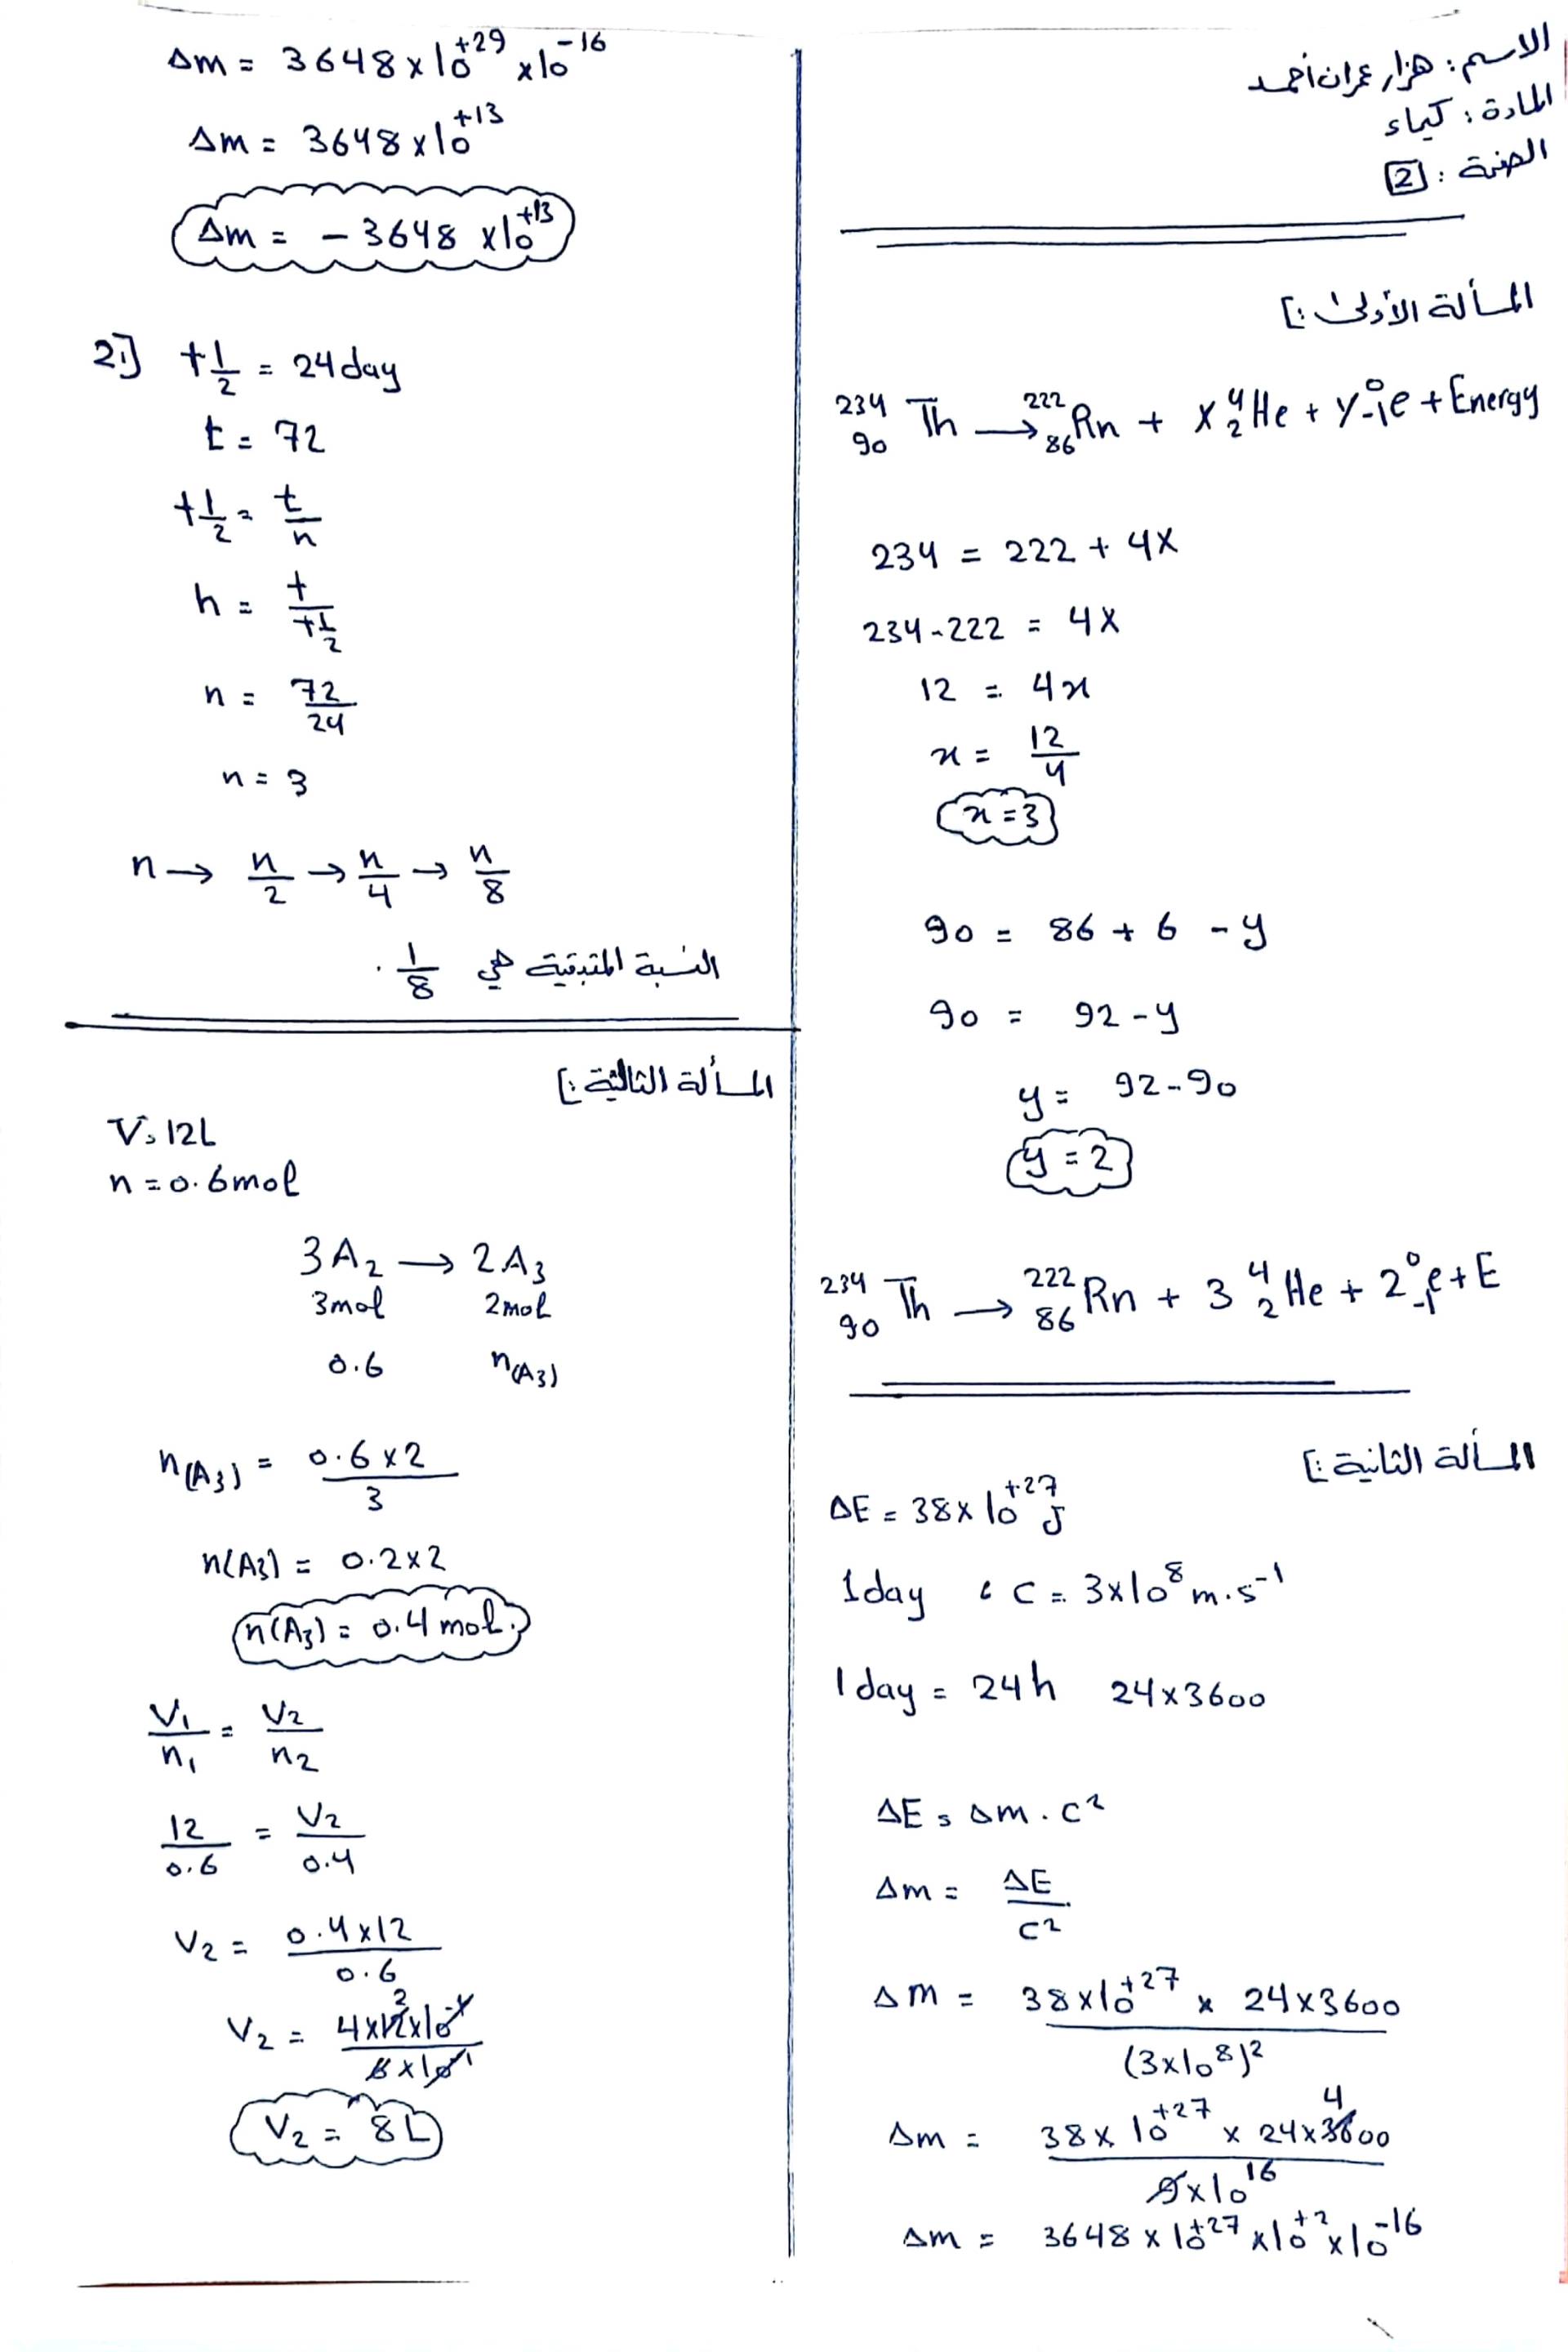 الاسم : هزار عمران أحمد
المادة : كيماء
الصفة : 2
المسألة الأولى :]
²³⁴₉₀Th → ²²²₈₆Rn + X ⁴₂He + Y ⁰₋₁e + Energy
234 = 222 + 4X
234-222 = 4X
12 = 4x
x = 12/4
x = 3
90 = 86 + 6 - y
90 = 92 - y
y = 92-90
y = 2
²³⁴₉₀Th → ²²²₈₆Rn + 3 ⁴₂He + 2 ⁰₋₁e + E
المسألة الثانية :]
ΔE = 38 × 10⁺²⁷ J
1day ، C = 3×10⁸ m.s⁻¹
1day = 24h 24×3600
ΔE = Δm . C²
Δm = ΔE/C²
Δm = 38×10⁺²⁷ × 24×3600 / (3×10⁸)²
Δm = 38×10⁺²⁷ × 24×3600 4 / 9×10¹⁶
Δm = 3648 × 10⁺²⁷ ×10⁺² ×10⁻¹⁶
Δm = 3648 × 10⁺²⁹ ×10⁻¹⁶
Δm = 3648 × 10⁺¹³
Δm = - 3648 ×10⁺¹³
2:] t½ = 24day
t = 72
t½ = t/n
n = t/t½
n = 72/24
n = 3
n → n/2 → n/4 → n/8
النسبة المتبقية هي 1/8 .
المسألة الثالثة :]
V = 12L
n = 0.6mol
3A₂ → 2A₃
3mol 2mol
0.6 n(A₃)
n(A₃) = 0.6×2 / 3
n(A₃) = 0.2×2
n(A₃) = 0.4 mol.
V₁/n₁ = V₂/n₂
12/0.6 = V₂/0.4
V₂ = 0.4×12 / 0.6
V₂ = 4×12×10⁻¹ 2 / 6×10⁻¹
V₂ = 8L